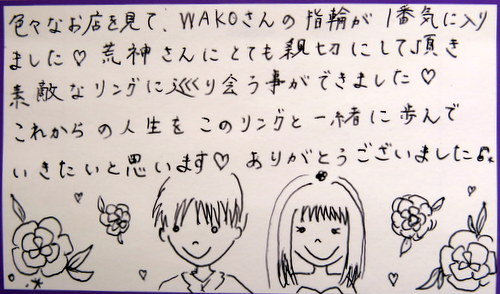 色々なお店を見て、WAKOさんの指輪が1番気に入り
ました♡ 荒神さんにとても親切にして頂き
素敵なリングに巡り会う事ができました♡
これからの人生をこのリングと一緒に歩んで
いきたいと思います♡ ありがとうございました♪。